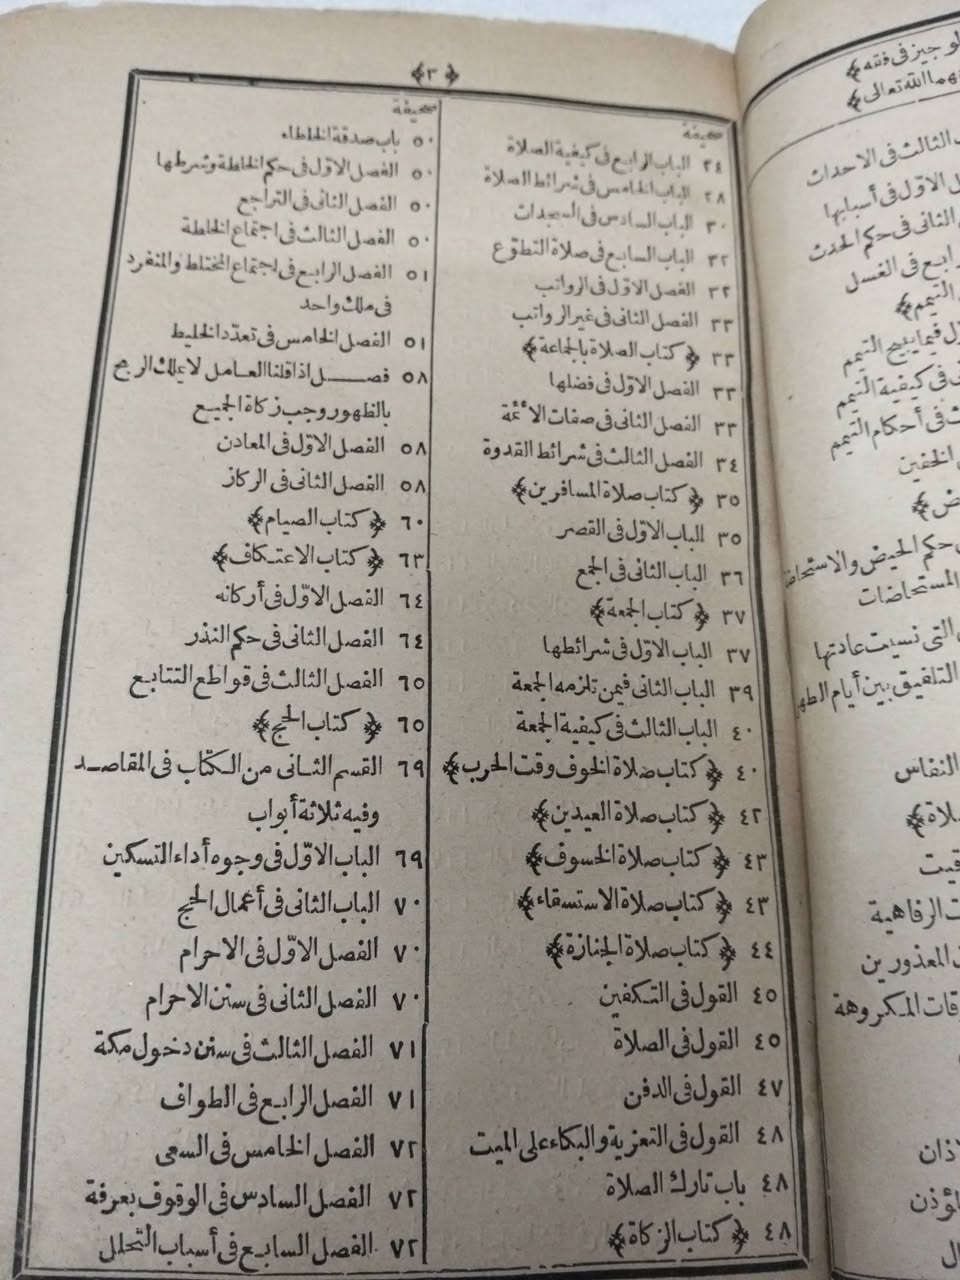 ﴿٣﴾
صحيفة
٢٤ الباب الرابع فى كيفية الصلاة
٢٨ الباب الخامس فى شرائط الصلاة
٣٠ الباب السادس فى السجدات
٣٢ الباب السابع فى صلاة التطوّع
٣٢ الفصل الاوّل فى الرواتب
٣٣ الفصل الثانى فى غير الرواتب
٣٣ ﴿كتاب الصلاة بالجماعة﴾
٣٣ الفصل الاوّل فى فضلها
٣٣ الفصل الثانى فى صفات الأئمّة
٣٤ الفصل الثالث فى شرائط القدوة
٣٥ ﴿كتاب صلاة المسافرين﴾
٣٥ الباب الاوّل فى القصر
٣٦ الباب الثانى فى الجمع
٣٧ ﴿كتاب الجمعة﴾
٣٧ الباب الاوّل فى شرائطها
٣٩ الباب الثانى فيمن تلزمه الجمعة
٤٠ الباب الثالث فى كيفية الجمعة
٤٠ ﴿كتاب صلاة الخوف وقت الحرب﴾
٤٢ ﴿كتاب صلاة العيدين﴾
٤٣ ﴿كتاب صلاة الخسوف﴾
٤٣ ﴿كتاب صلاة الاستسقاء﴾
٤٤ ﴿كتاب صلاة الجنازة﴾
٤٥ القول فى التكفين
٤٥ القول فى الصلاة
٤٧ القول فى الدفن
٤٨ القول فى التعزية والبكاء على الميت
٤٨ باب تارك الصلاة
٤٨ ﴿كتاب الزكاة﴾
صحيفة
٥٠ باب صدقة الخلطاء
٥٠ الفصل الاوّل فى حكم الخلطة وشرطها
٥٠ الفصل الثانى فى التراجع
٥٠ الفصل الثالث فى اجتماع الخلطة
٥١ الفصل الرابع فى اجتماع المختلط والمنفرد
فى ملك واحد
٥١ الفصل الخامس فى تعدّد الخليط
٥٨ فصل اذا قلنا العامل لا يملك الربح
بالظهور وجب زكاة الجميع
٥٨ الفصل الاوّل فى المعادن
٥٨ الفصل الثانى فى الركاز
٦٠ ﴿كتاب الصيام﴾
٦٣ ﴿كتاب الاعتكاف﴾
٦٤ الفصل الاوّل فى أركانه
٦٤ الفصل الثانى فى حكم النذر
٦٥ الفصل الثالث فى قواطع التتابع
٦٥ ﴿كتاب الحج﴾
٦٩ القسم الثانى من الكتاب فى المقاصد
وفيه ثلاثة أبواب
٦٩ الباب الاوّل فى وجوه أداء النسكين
٧٠ الباب الثانى فى أعمال الحج
٧٠ الفصل الاوّل فى الاحرام
٧٠ الفصل الثانى فى سنن الاحرام
٧١ الفصل الثالث فى سنن دخول مكة
٧١ الفصل الرابع فى الطواف
٧٢ الفصل الخامس فى السعى
٧٢ الفصل السادس فى الوقوف بعرفة
٧٢ الفصل السابع فى أسباب التحلل
الوجيز فى فقه﴾
الله تعالى﴾
الثالث فى الاحداث
الاوّل فى أسبابها
الثانى فى حكم الحدث
الرابع فى الغسل
التيمم﴾
فيما يبيح التيمم
فى كيفية التيمم
فى أحكام التيمم
الخفين
حكم الحيض والاستحاضة
المستحاضات
التى نسيت عادتها
التلفيق بين أيام الطهر
النفاس
الرفاهية
المعذورين
المكروهة